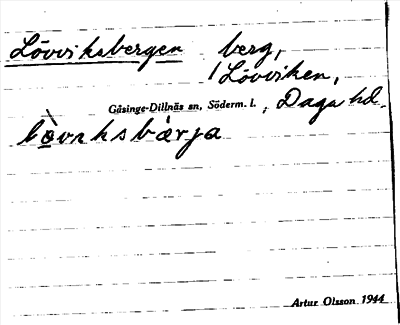 Lövviksbergen berg,
/Lövviken,
Gåsinge-Dillnäs sn, Söderm. l. , Daga hd.
lò̤vıksbàrja
Artur Olsson 1944